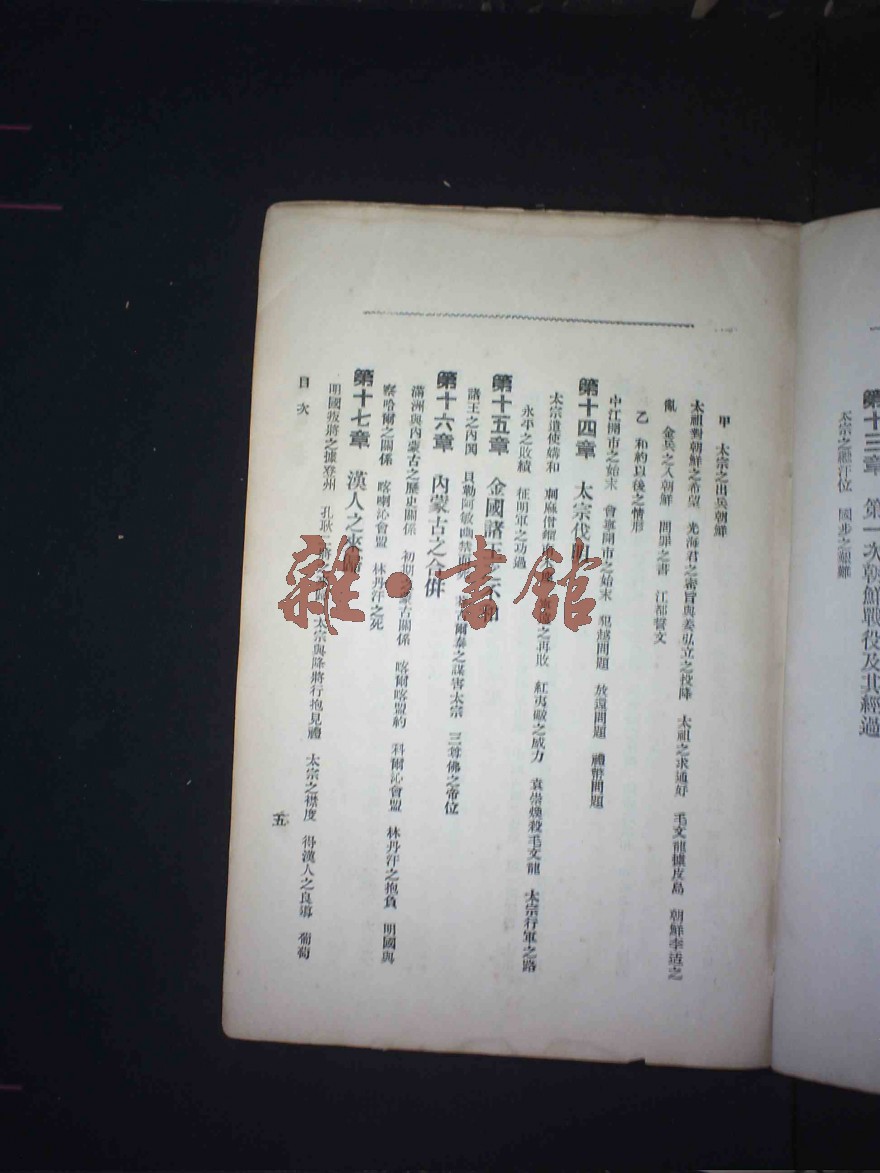 第十三章　第一次朝鮮戰役及其經過
太宗之　位　國步之艱難
甲　太宗之出兵朝鮮
太祖對朝鮮之希望　光海君之密旨與姜弘立之投降　太祖之求通好　毛文龍據皮島　朝鮮李适之
亂　金兵之入朝鮮　問罪之書　江都誓文
乙　和約以後之情形
中江開市之始末　會寧開市之始末　犯越問題　放還問題　禮幣問題
第十四章　太宗伐明
太宗遣使媾和　刺麻僧　之再敗　紅夷礮之威力　袁崇煥殺毛文龍　太宗行軍之路
永平之敗績　征明軍之功過
第十五章　金國諸王之不
諸王之內鬨　貝勒阿敏幽禁　爾泰之謀害太宗　三尊佛之帝位
第十六章　內蒙古之合併
滿洲與內蒙古之歷史關係　初期　蒙古關係　喀爾喀盟約　科爾沁會盟　林丹汗之抱負　明國與
察哈爾之關係　喀喇沁會盟　林丹汗之死
第十七章　漢人之來歸
明國叛將之據登州　孔耿二將之　太宗與降將行抱見禮　太宗之襟度　得漢人之良導　葡萄
目次
五
雜·書館